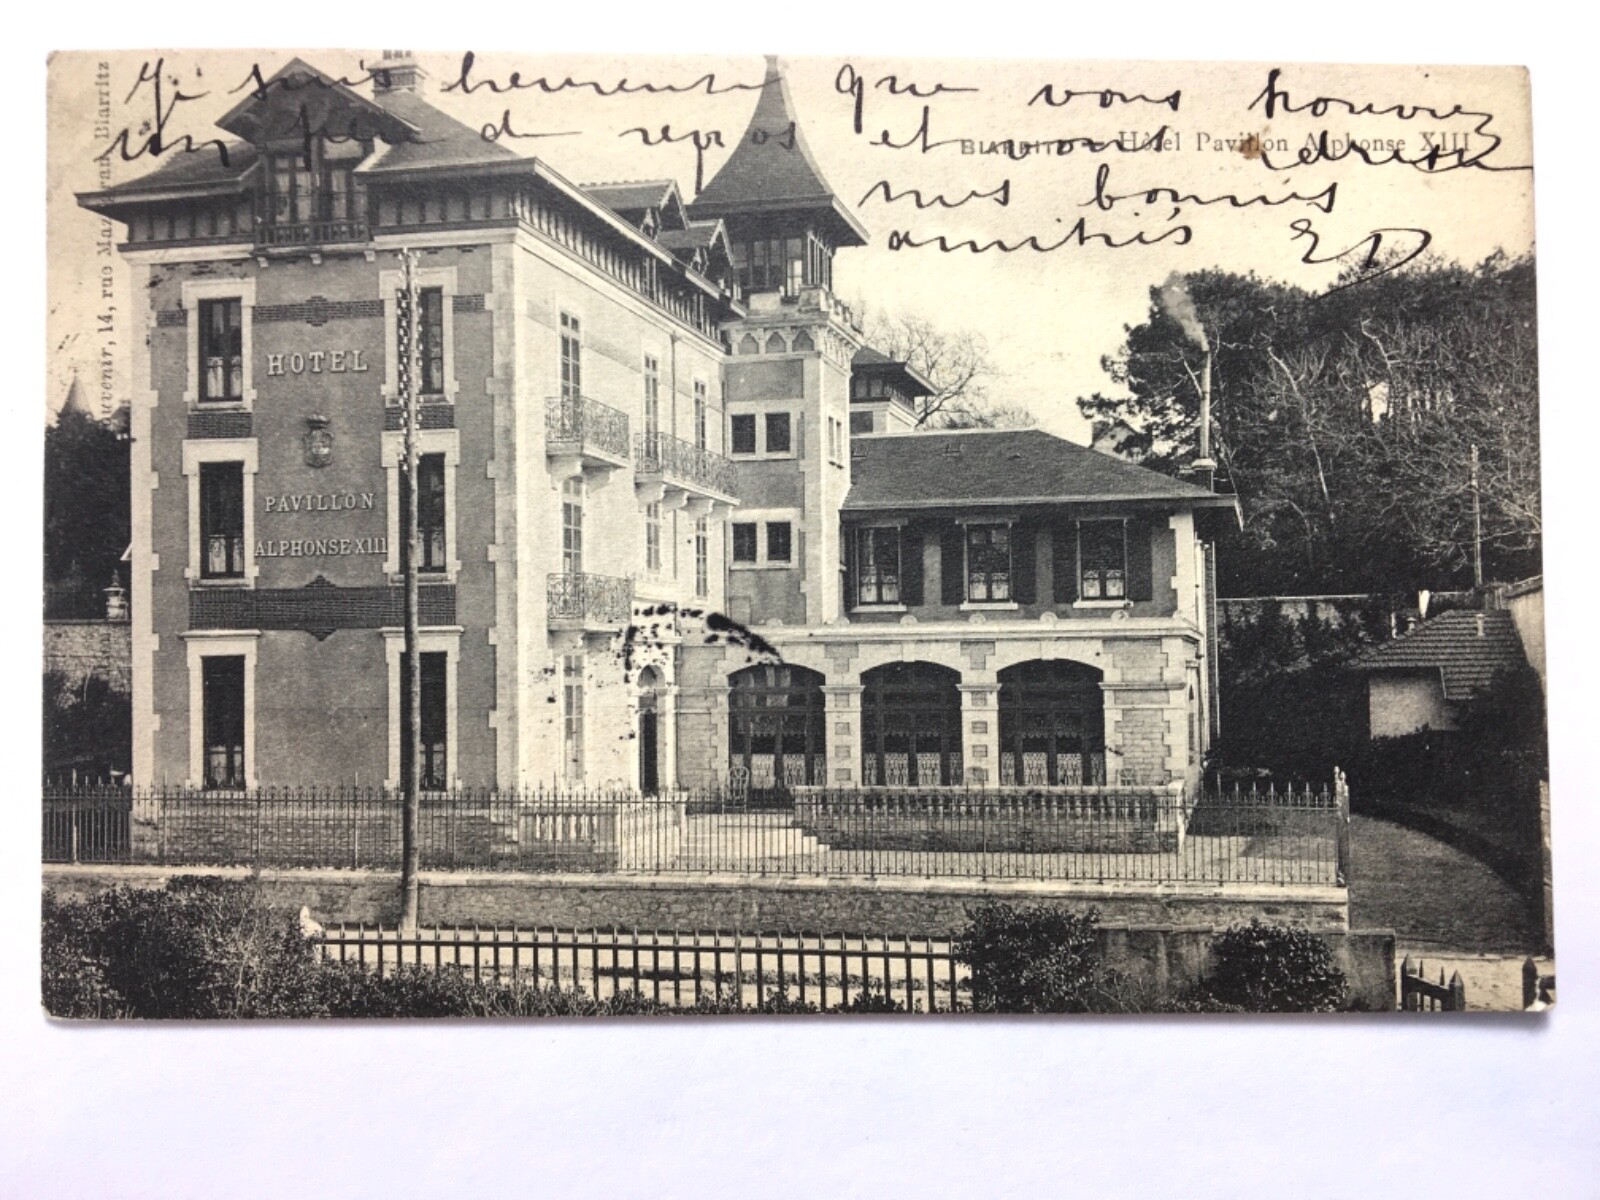 Je suis heureuse que vous trouviez
un peu de repos et vous adresse
mes bonnes
amitiés ED
BIARRITZ - Hôtel Pavillon Alphonse XIII
HOTEL
PAVILLON
ALPHONSE XIII
uvenir, 14, rue Maz ran Biarritz